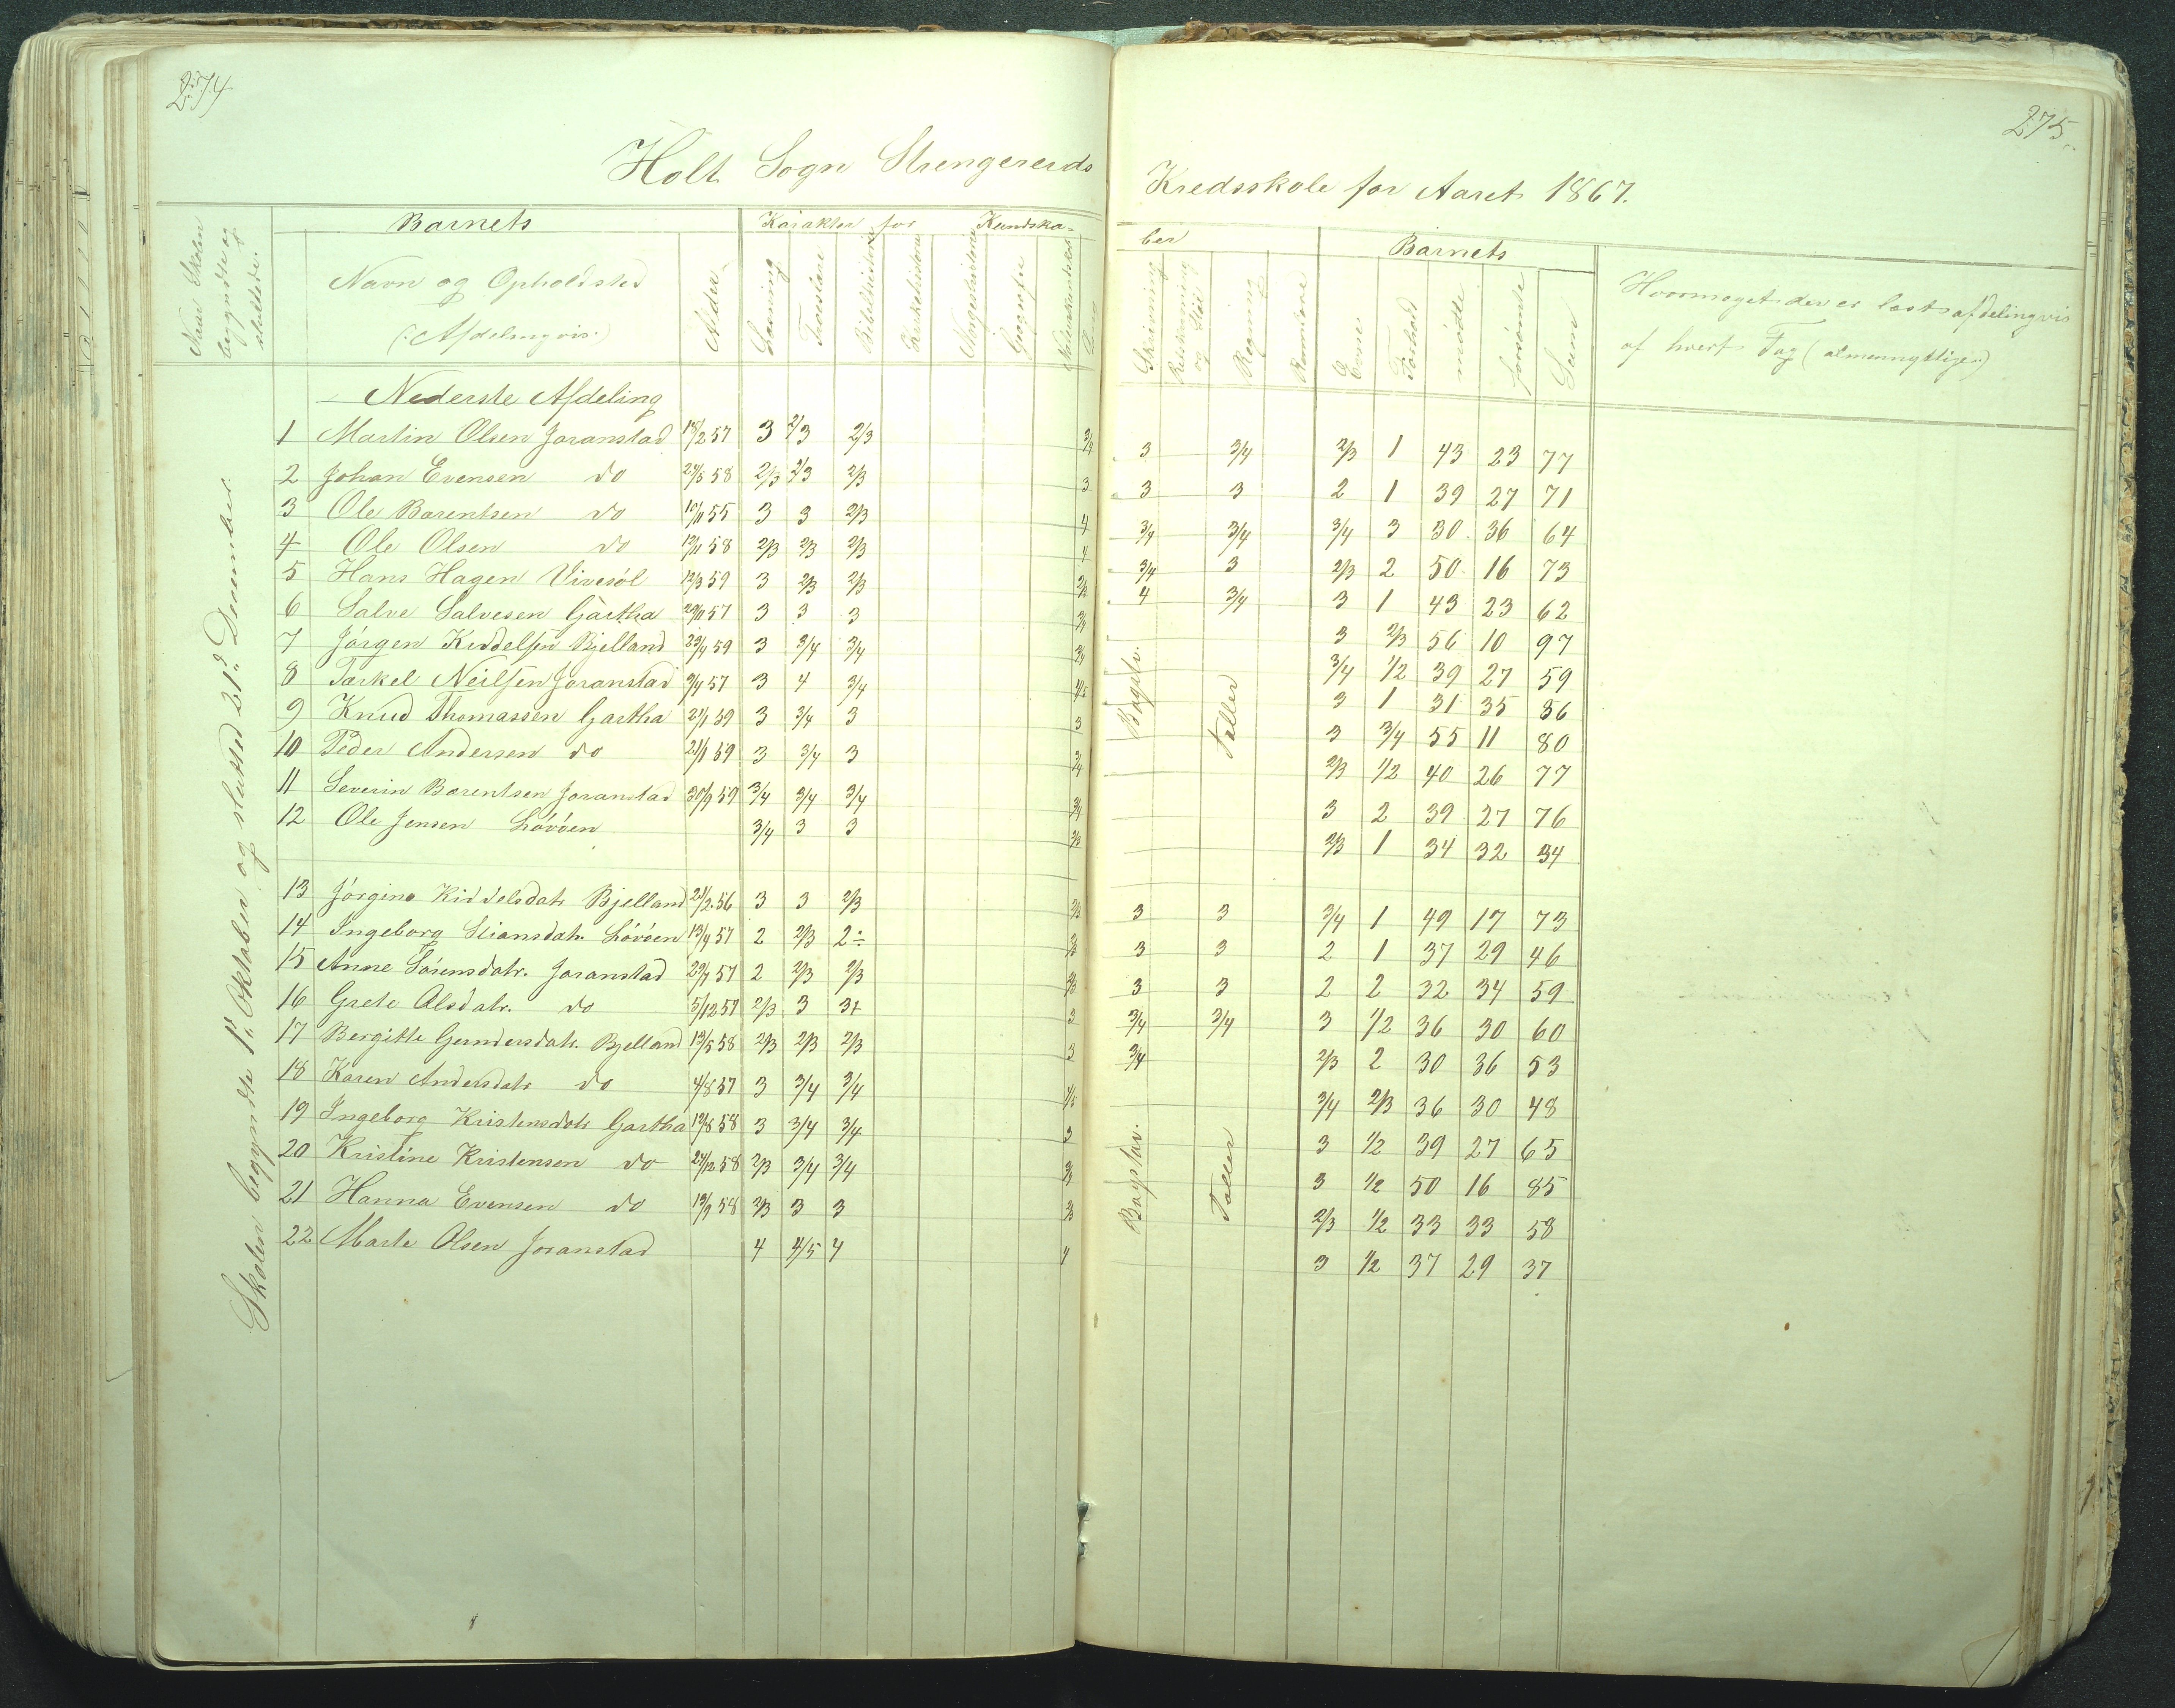 274
275
Holt Sogn Strengereids Kredsskole for Aaret 1867.
Naar Skolen begyndte og sluttede.
Barnets
Navn og Opholdsted
(:Afdelingvis:)
Alder
Karakter for Kundskaber
Læsning
Troeslære
Bibelhistorie
Kirkehistorie
Norgeshistorie
Geografie
Naturkundskab
Sang
Skrivning
Retskrivning og Stiil
Regning
Barnets
Evner
Forhold
mødte
forsømte
Sum
Hvormeget der er læst afdelingvis
af hvert Fag (almennyttige)
Skolen begyndte 1ste Oktober og slutted 21de December.
Nederste Afdeling
1 Martin Olsen Joranstad 18/2 57 3 2/3 2/3 3/4 3 3/4 2/3 1 43 23 77
2 Johan Evensen do 24/5 58 2/3 2/3 2/3 3 3 3 2 1 39 27 71
3 Ole Barentsen do 10/11 55 3 3 2/3 4 3/4 3/4 3/4 3 30 36 64
4 Ole Olsen do 12/11 58 2/3 2/3 2/3 4 3/4 3 2/3 2 50 16 73
5 Hans Hagen Vivesøl 12/3 59 3 2/3 2/3 2/3 4 3/4 3 1 43 23 62
6 Salve Salvesen Gartha 29/11 57 3 3 3 3/4 3 2/3 56 10 97
7 Jørgen Kiddelsen Bjelland 23/4 59 3 3/4 3/4 3/4 3/4 1/2 39 27 59
8 Tarkel Neilsen Joranstad 9/4 57 3 4 3/4 4/5 3 1 31 35 86
9 Knud Thomassen Gartha 21/1 59 3 3/4 3 3 3 3/4 55 11 80
10 Peder Andersen do 21/1 59 3 3/4 3 3/4 2/3 1/2 40 26 77
11 Severin Barentsen Joranstad 30/9 59 3/4 3/4 3/4 3/4 3 2 39 27 76
12 Ole Jensen Løvøen 3/4 3 3 2/3 2/3 1 34 32 34
Bogstav.
Taller
13 Jørgine Kiddelsdatr Bjelland 21/2 56 3 3 2/3 2/3 3 3 3/4 1 49 17 73
14 Ingeborg Stiansdatr. Løvøen 13/9 57 2 2/3 2÷ 2/3 3 3 2 1 37 29 46
15 Anne Sørensdatr. Joranstad 29/7 57 2 2/3 2/3 2/3 3 3 2 2 32 34 59
16 Grete Alsdatr. do 5/12 57 2/3 3 3+ 3 3/4 3/4 3 1/2 36 30 60
17 Bergitte Gundersdatr. Bjelland 19/5 58 2/3 2/3 2/3 3 3/4 2/3 2 30 36 53
18 Karen Andersdatr do 4/8 57 3 3/4 3/4 4/5 3/4 2/3 36 30 48
19 Ingeborg Kristensdatr Gartha 19/8 58 3 3/4 3/4 3 3 1/2 39 27 65
20 Kristine Kristensen do 24/12 58 2/3 3/4 3/4 3/4 3 1/2 50 16 85
21 Hanna Evensen do 13/9 58 2/3 3 3 2/3 2/3 1/2 33 33 58
22 Marte Olsen Joranstad 4 4/5 4 4 3 1/2 37 29 37
Bogstav.
Taller